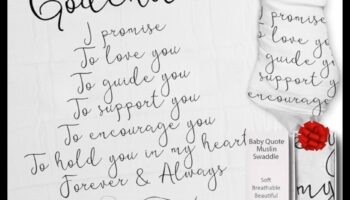 I promise
To love you
To guide you
To support you
To encourage you
To hold you in my heart
Forever & Always
To love you
to guide you
support you
encourage
Baby Quote
Muslin
Swaddle
Soft
Breathable
Beautiful